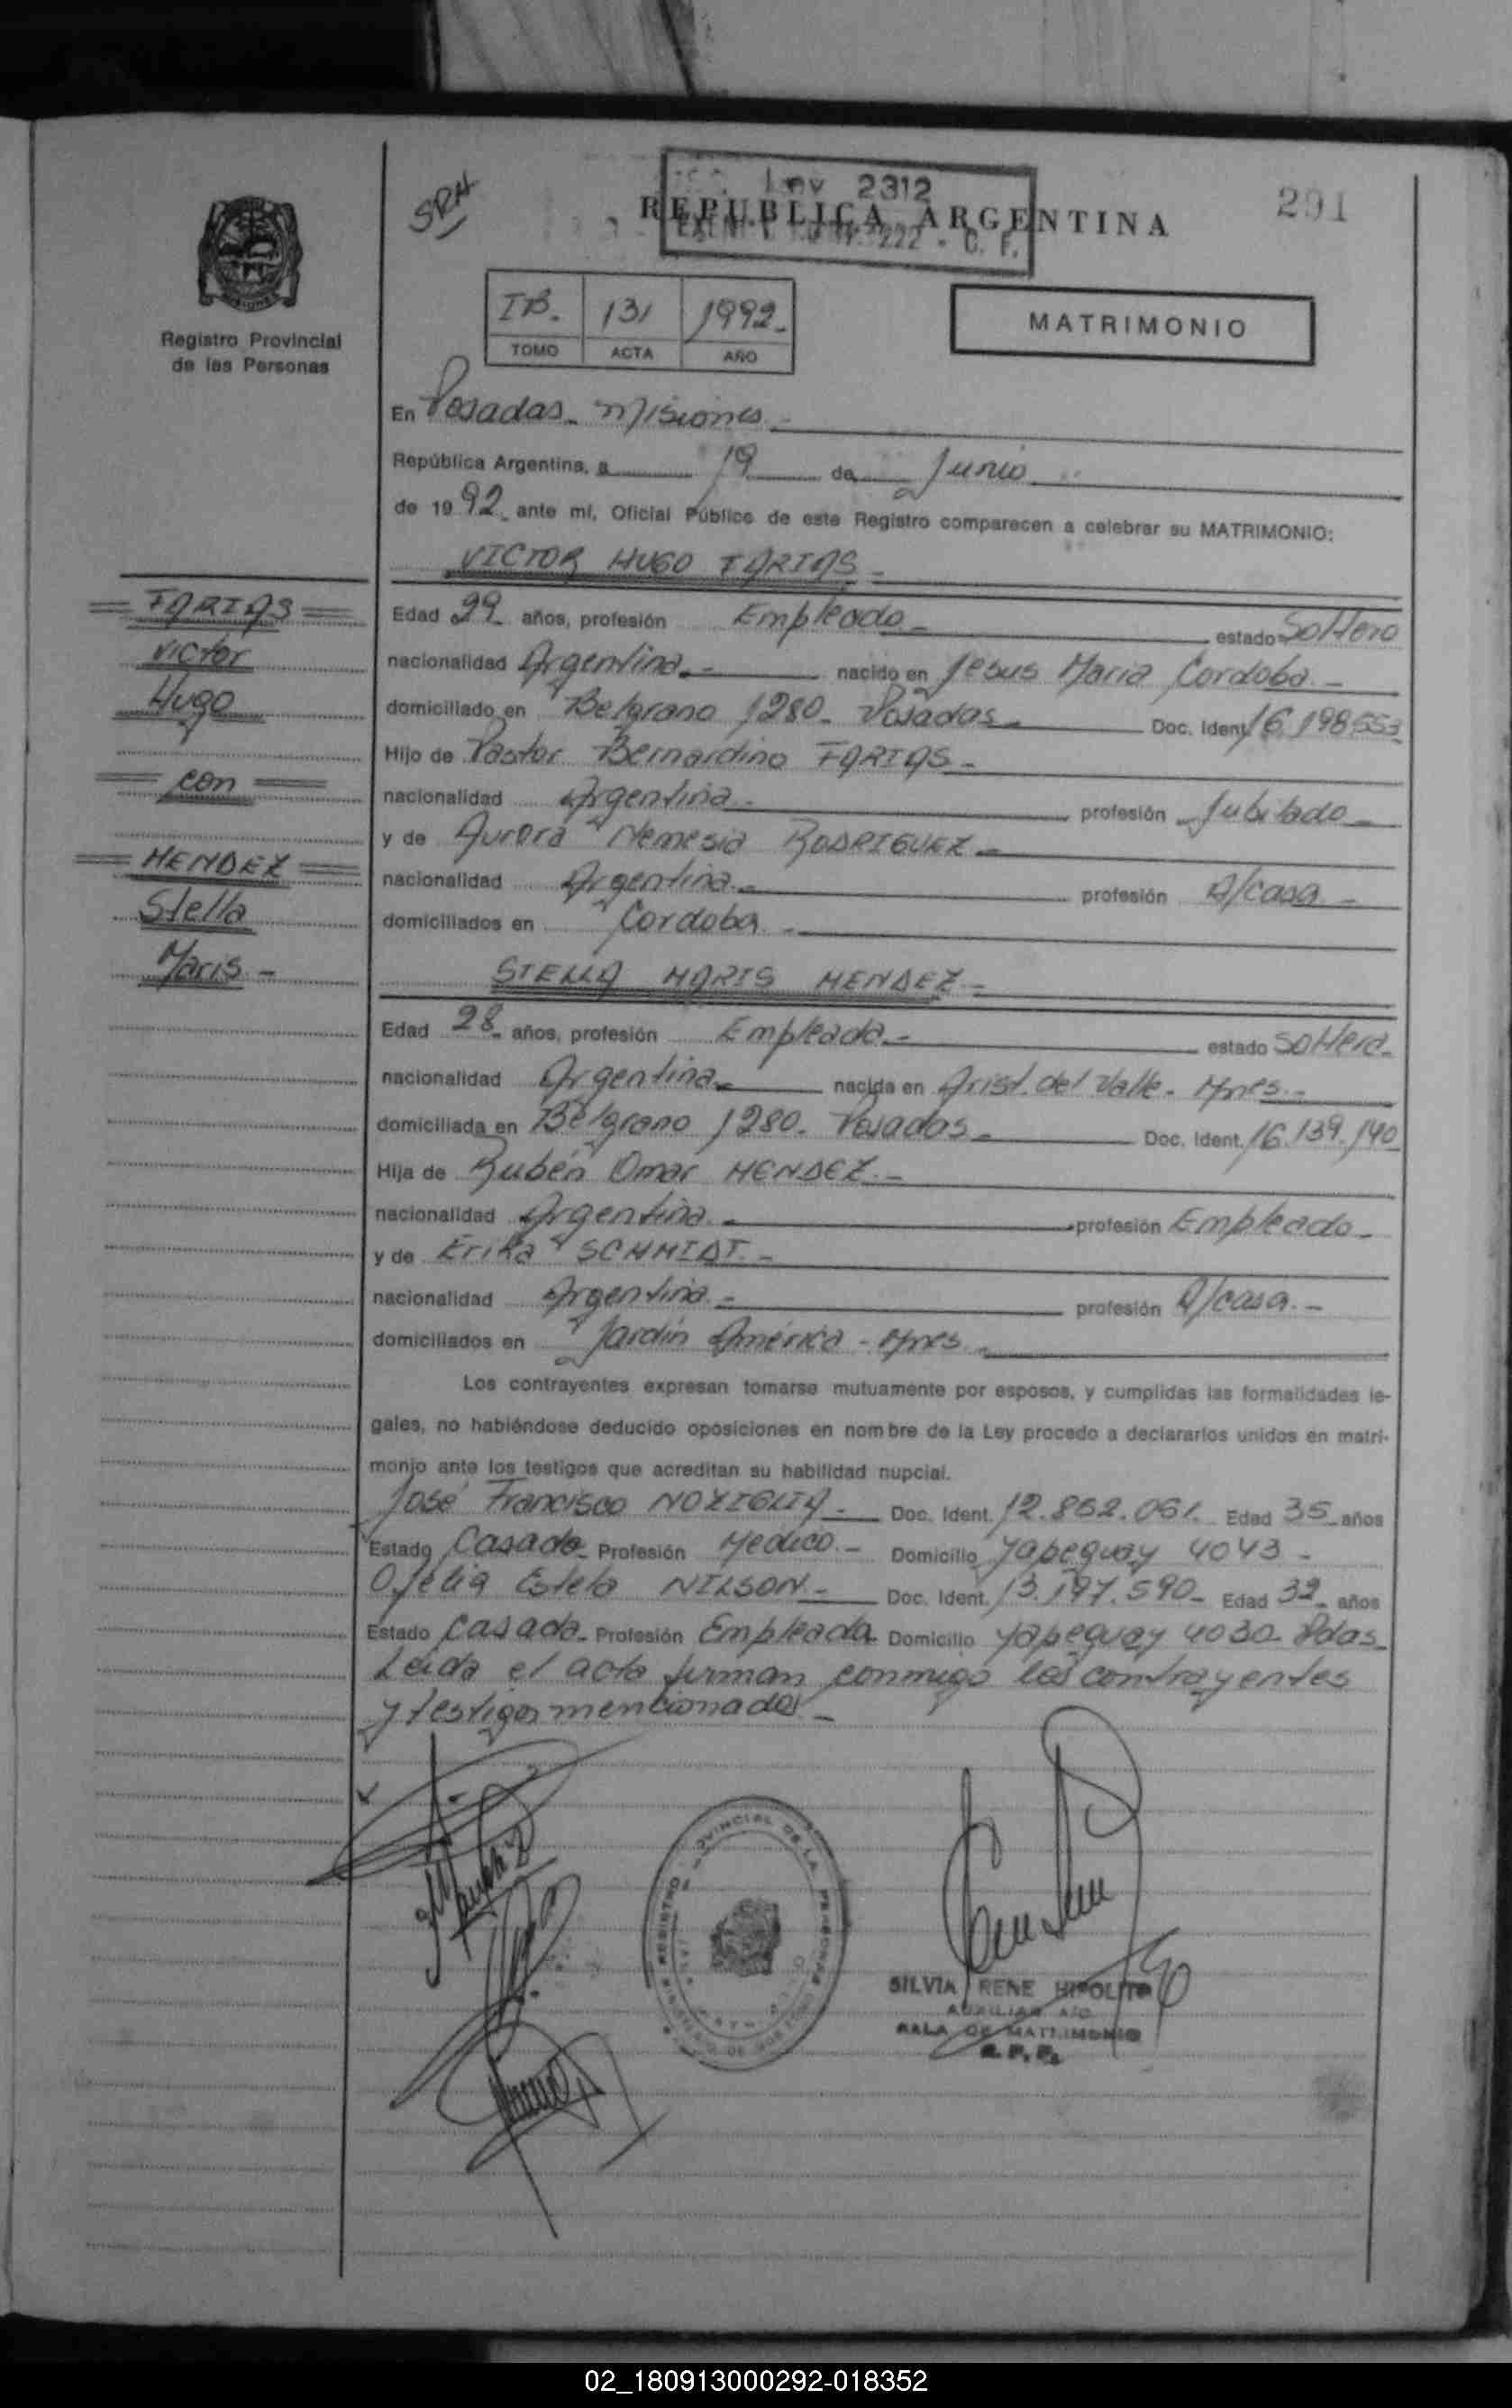 SRH
Ley 2312
REPUBLICA ARGENTINA
291
IB. 131 1992.-
TOMO ACTA AÑO
MATRIMONIO
Registro Provincial
de las Personas
En Posadas - Misiones.-
República Argentina, a 19 de Junio
de 19 92 ante mí, Oficial Público de este Registro comparecen a celebrar su MATRIMONIO:
VICTOR HUGO FARIAS.-
FARIAS
Victor
Hugo
con
MENDEZ
Stella
Maris.-
Edad 29 años, profesión Empleado.- estado Soltero
nacionalidad Argentina.- nacido en Jesus Maria Cordoba.-
domiciliado en Belgrano 1280- Posadas.- Doc. Ident. 16.198.553
Hijo de Pastor Bernardino FARIAS.-
nacionalidad Argentina.- profesión Jubilado.-
y de Aurora Nemesia RODRIGUEZ.-
nacionalidad Argentina.- profesión A/casa.-
domiciliados en Cordoba.-
STELLA MARIS MENDEZ.-
Edad 28 años, profesión Empleada.- estado Soltera.
nacionalidad Argentina.- nacida en Arist. del Valle - Mnes.-
domiciliada en Belgrano 1280- Posadas.- Doc. Ident. 16.139.140
Hija de Rubén Omar MENDEZ.-
nacionalidad Argentina.- profesión Empleado.-
y de Erika SCHMIDT.-
nacionalidad Argentina.- profesión A/casa.-
domiciliados en Jardín América - Mnes.-
Los contrayentes expresan tomarse mutuamente por esposos, y cumplidas las formalidades le-
gales, no habiéndose deducido oposiciones en nombre de la Ley procedo a declararlos unidos en matri-
monio ante los testigos que acreditan su habilidad nupcial.
José Francisco NOZIGLIA.- Doc. Ident. 12.852.061. Edad 35 años
Estado Casado Profesión Medico.- Domicilio Yapeguay 4043 -
Ofelia Estela NILSON.- Doc. Ident. 13.197.590- Edad 32 años
Estado Casada- Profesión Empleada Domicilio Yapeguay 4030- Pdas.-
Leida el acta firman conmigo los contrayentes
y testigos mencionados.-
SILVIA RENE HIPOLITO
AUXILIAR A/C
SALA DE MATRIMONIO
R. P. P.
02_180913000292-018352